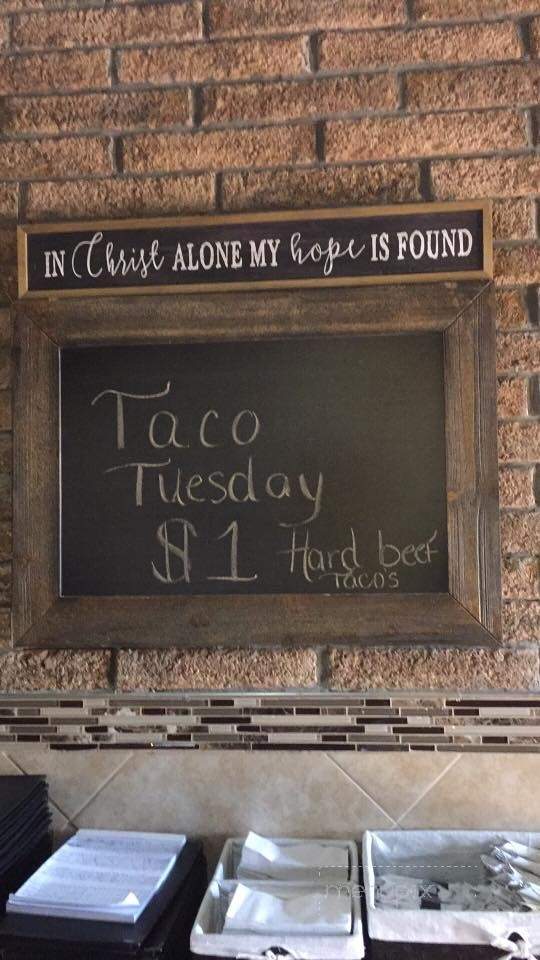 IN Christ ALONE MY hope IS FOUND
Taco
Tuesday
$1 Hard beef
TACOS
menupix